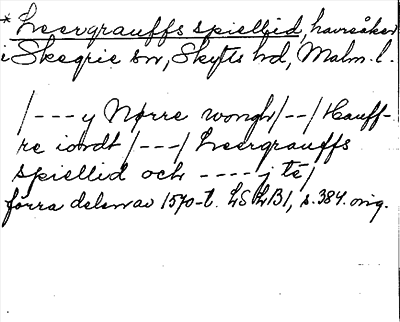 * Leergrauffs spiellid, havreåker
i Skegrie sn, Skytts hd, Malm. l.
/--- y Nørre wongh /--/ Hauff-
re iordt /---/ Leergrauffs
spiellid och ---- j té/
förra delen av 1570-t. LSLB1, s. 384. orig.